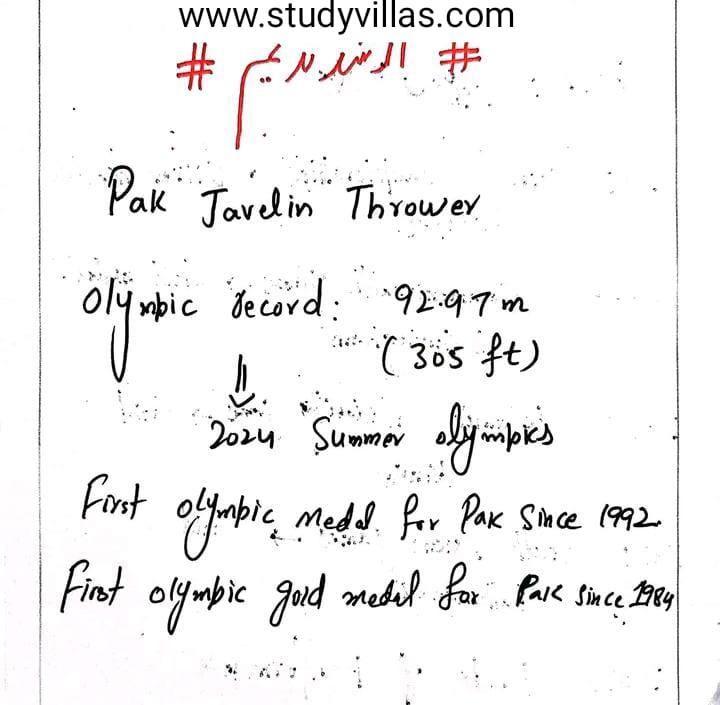 www.studyvillas.com
# ارشد ندیم #
Pak Javelin Thrower
Olympic record: 92.97 m
(305 ft)
⇓
2024 Summer olympics
First olympic medal for Pak Since 1992.
First olympic gold medal for Pak since 1984